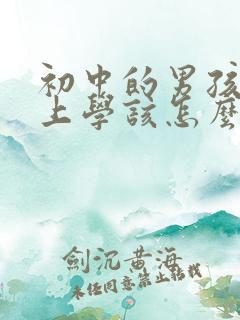 初中的男孩
上學該怎麼
劍沉黄海
未经同意禁止转载